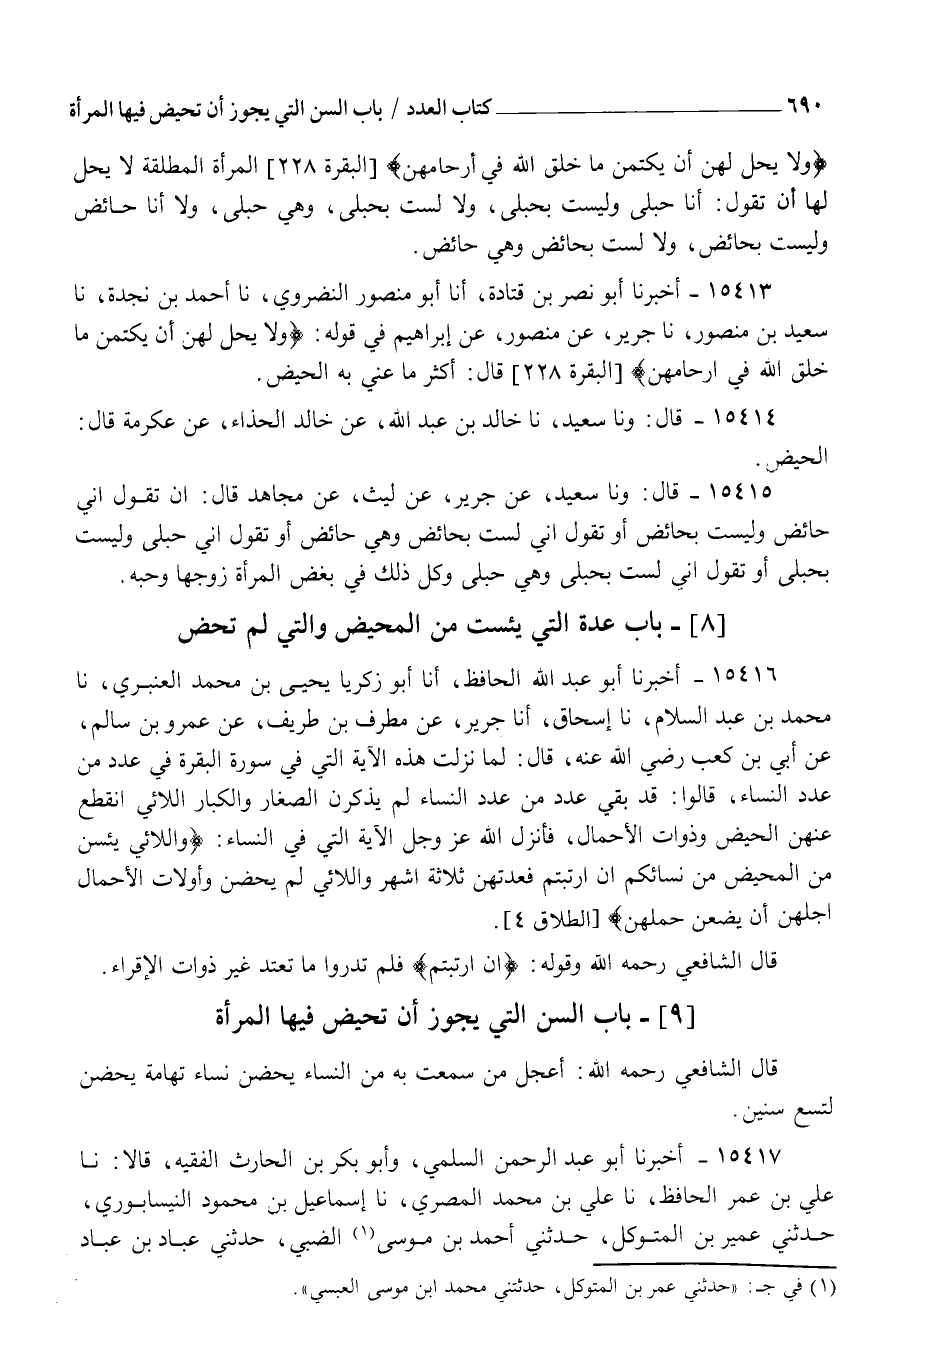 ٦٩٠ ــــــــــــــــــــ كتاب العدد / باب السن التي يجوز أن تحيض فيها المرأة
﴿ولا يحل لهن أن يكتمن ما خلق الله في أرحامهن﴾ [البقرة ٢٢٨] المرأة المطلقة لا يحل
لها أن تقول: أنا حبلى وليست بحبلى، ولا لست بحبلى، وهي حبلى، ولا أنا حائض
وليست بحائض، ولا لست بحائض وهي حائض.
١٥٤١٣ - أخبرنا أبو نصر بن قتادة، أنا أبو منصور النضروي، نا أحمد بن نجدة، نا
سعيد بن منصور، نا جرير، عن منصور، عن إبراهيم في قوله: ﴿ولا يحل لهن أن يكتمن ما
خلق الله في ارحامهن﴾ [البقرة ٢٢٨] قال: أكثر ما عني به الحيض.
١٥٤١٤ - قال: ونا سعيد، نا خالد بن عبد الله، عن خالد الحذاء، عن عكرمة قال:
الحيض.
١٥٤١٥ - قال: ونا سعيد، عن جرير، عن ليث، عن مجاهد قال: ان تقول اني
حائض وليست بحائض أو تقول اني لست بحائض وهي حائض أو تقول اني حبلى وليست
بحبلى أو تقول اني لست بحبلى وهي حبلى وكل ذلك في بغض المرأة زوجها وحبه.
[٨] - باب عدة التي يئست من المحيض والتي لم تحض
١٥٤١٦ - أخبرنا أبو عبد الله الحافظ، أنا أبو زكريا يحيى بن محمد العنبري، نا
محمد بن عبد السلام، نا إسحاق، أنا جرير، عن مطرف بن طريف، عن عمرو بن سالم،
عن أبي بن كعب رضي الله عنه، قال: لما نزلت هذه الآية التي في سورة البقرة في عدد من
عدد النساء، قالوا: قد بقي عدد من عدد النساء لم يذكرن الصغار والكبار اللائي انقطع
عنهن الحيض وذوات الأحمال، فأنزل الله عز وجل الآية التي في النساء: ﴿واللائي يئسن
من المحيض من نسائكم ان ارتبتم فعدتهن ثلاثة اشهر واللائي لم يحضن وأولات الأحمال
اجلهن أن يضعن حملهن﴾ [الطلاق ٤].
قال الشافعي رحمه الله وقوله: ﴿ان ارتبتم﴾ فلم تدروا ما تعتد غير ذوات الإقراء.
[٩] - باب السن التي يجوز أن تحيض فيها المرأة
قال الشافعي رحمه الله: أعجل من سمعت به من النساء يحضن نساء تهامة يحضن
لتسع سنين.
١٥٤١٧ - أخبرنا أبو عبد الرحمن السلمي، وأبو بكر بن الحارث الفقيه، قالا: نا
علي بن عمر الحافظ، نا علي بن محمد المصري، نا إسماعيل بن محمود النيسابوري،
حدثني عمير بن المتوكل، حدثني أحمد بن موسى(١) الضبي، حدثني عباد بن عباد
(١) في جـ: «حدثني عمر بن المتوكل، حدثتني محمد ابن موسى العبسي».